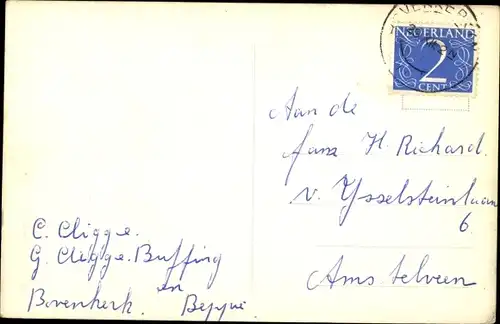 NEDERLAND
2
CENT
Aan de
fam H. Richard.
v. Ysselsteinlaan
6
Amstelveen
C. Cligge.
G. Cligge. Buffing
en
Bovenkerk. Beppie